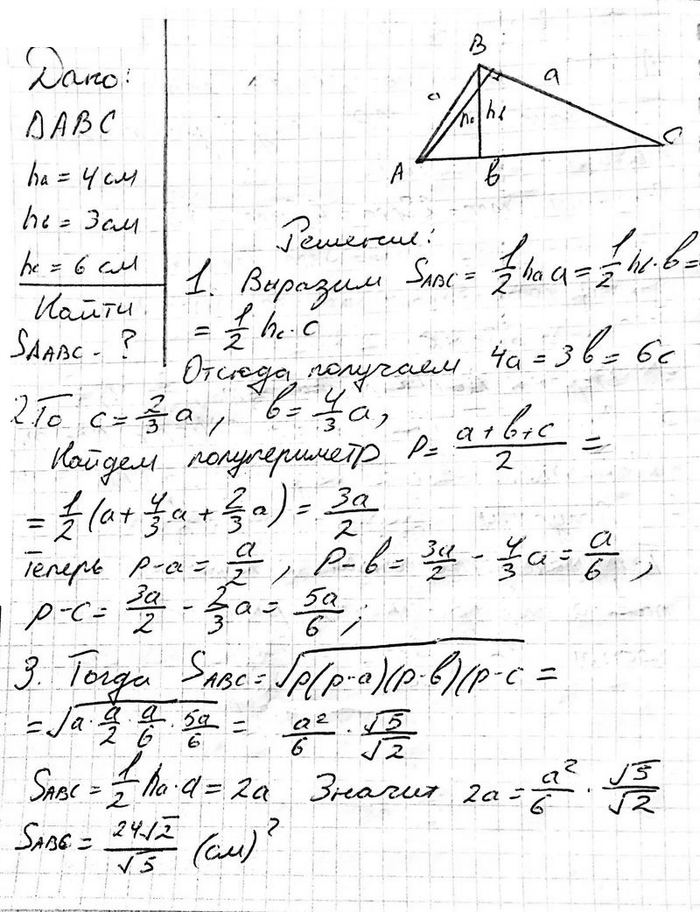 Дано:
ΔABC
hₐ = 4 см
h_в = 3 см
h_c = 6 см
Найти
S_ΔABC - ?
B
a
h_c
h_в
A
в
C
Решение:
1. Выразим S_ABC = 1/2 hₐ a = 1/2 h_в · в =
= 1/2 h_c · c
Отсюда получаем 4a = 3в = 6c
2 То c = 2/3 a, в = 4/3 a,
Найдем полупериметр P = (a + в + c)/2 =
= 1/2 (a + 4/3 a + 2/3 a) = 3a/2
Теперь p-a = a/2, p-в = 3a/2 - 4/3 a = a/6,
p-c = 3a/2 - 2/3 a = 5a/6;
3. Тогда S_ABC = √p(p-a)(p-в)(p-c =
= √a · a/2 · a/6 · 5a/6 = a²/6 · √5/√2
S_ABC = 1/2 hₐ · a = 2a Значит 2a = a²/6 · √5/√2
S_ABC = 24√2/√5 (см)²